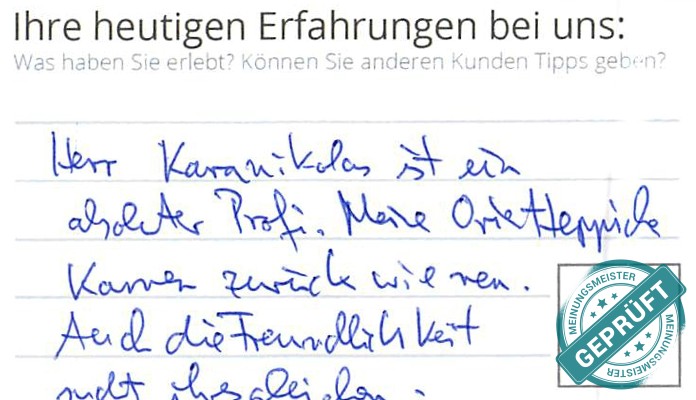 Ihre heutigen Erfahrungen bei uns:
Was haben Sie erlebt? Können Sie anderen Kunden Tipps geben?
Herr Karanikolas ist ein
absoluter Profi. Meine Orietteppiche
kamen zurück wie neu.
Auch die Freundlichkeit
sucht ihresgleichen.
MEINUNGSMEISTER
GEPRÜFT
MEINUNGSMEISTER